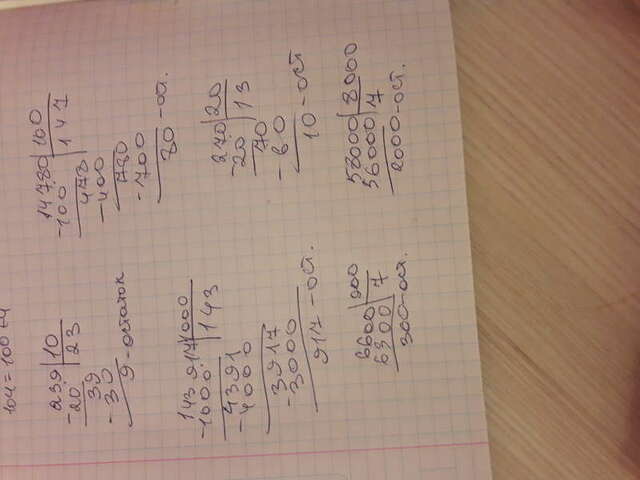 104 = 100 + 4
239 | 10
-20 | 23
39
-30
9 - остаток
14780 | 100
-100 | 147
478
-400
780
-700
80 - ост.
143 917 | 1000
-1000 | 143
4391
-4000
3917
-3000
917 - ост.
270 | 20
-20 | 13
70
-60
10 - ост
6600 | 900
6300 | 7
300 - ост.
58000 | 8000
56000 | 7
2000 - ост.